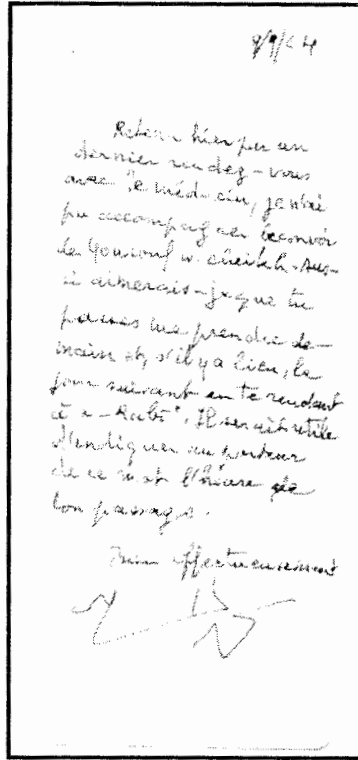 9/9/64
Retenu hier par un
dernier rendez-vous
avec le médecin, je n'ai
pu accompagner le convoi
de Youssouf
aimerais-je que tu
passes me prendre de-
main et, s'il y a lieu, le
jour suivant en te rendant
à Il serait utile
d'indiquer au porteur
de ce mot l'heure de
ton passage.
affectueusement